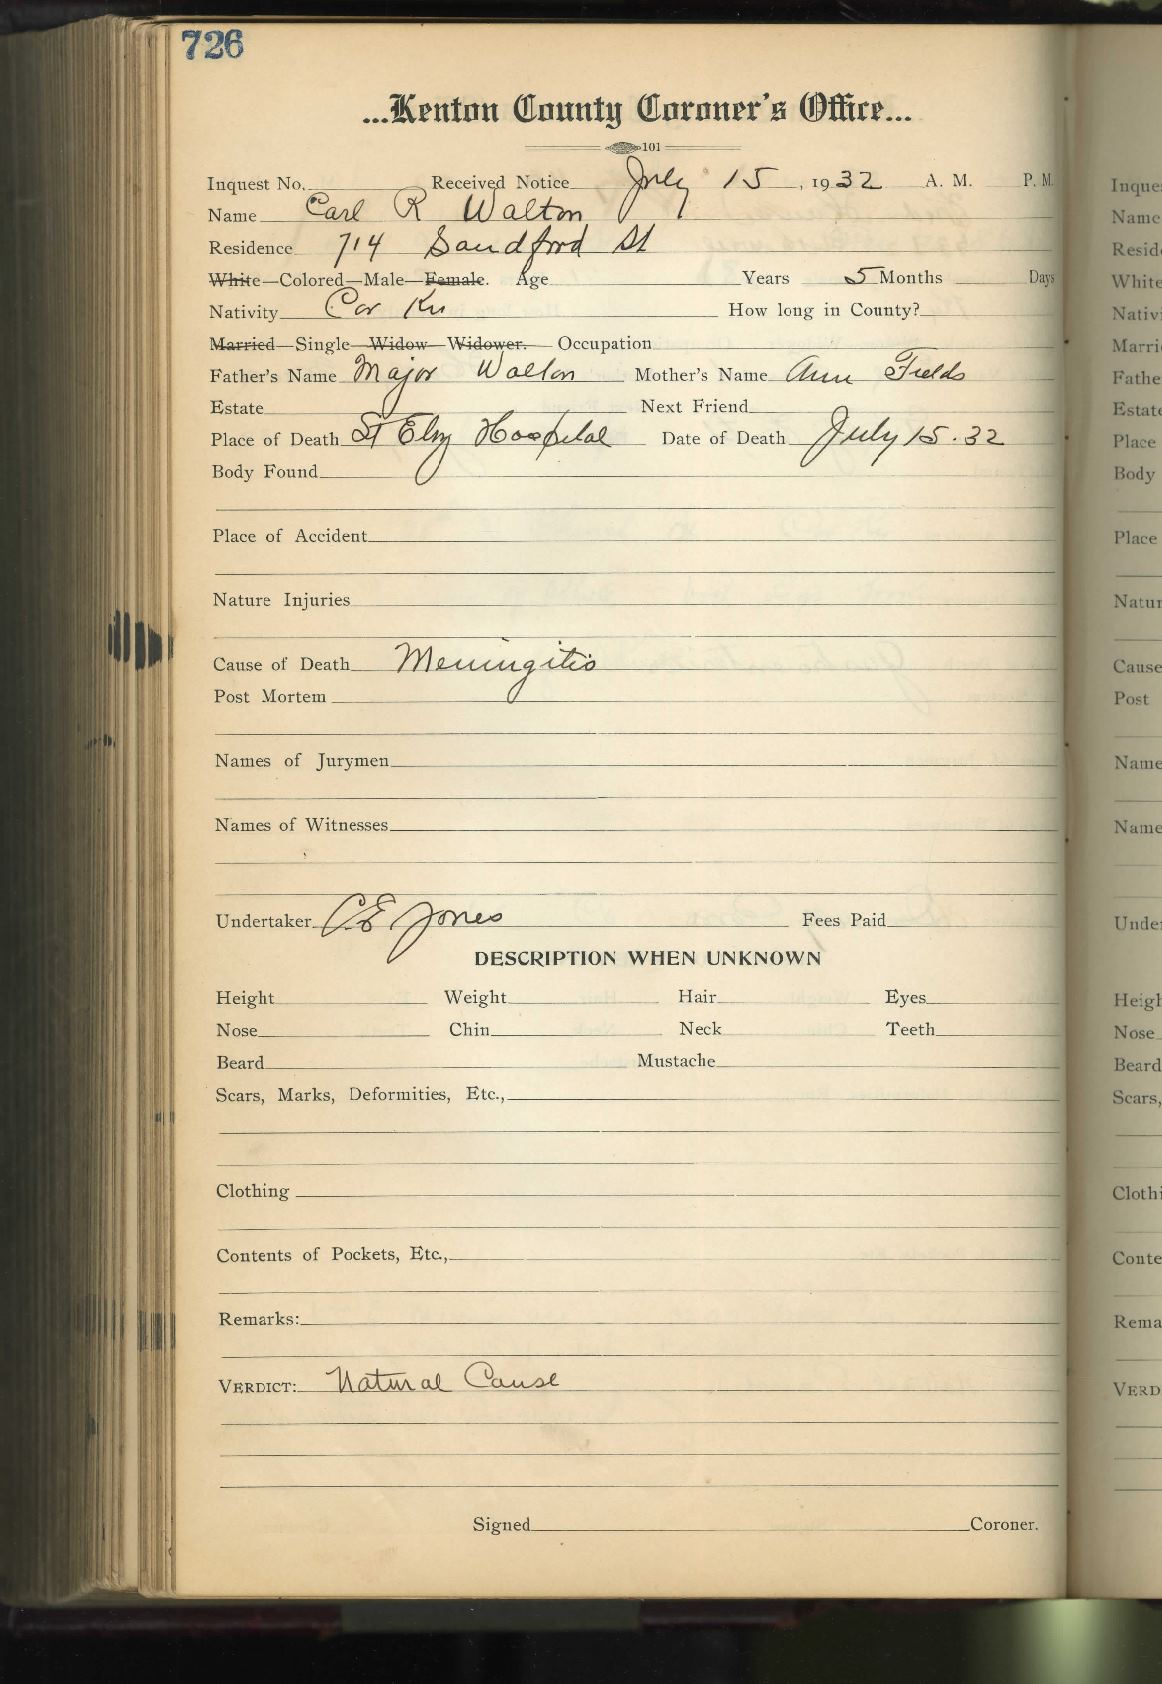 726
...Kenton County Coroner's Office...
101
Inquest No. Received Notice July 15, 1932 A. M. P. M.
Name Carl R Walton
Residence 714 Sandford St
White—Colored—Male—Female. Age Years 5 Months Days
Nativity Cov Ky How long in County?
Married—Single—Widow—Widower. Occupation
Father's Name Major Walton Mother's Name Ann Fields
Estate Next Friend
Place of Death St Eliz Hospital Date of Death July 15.32
Body Found
Place of Accident
Nature Injuries
Cause of Death Meningitis
Post Mortem
Names of Jurymen
Names of Witnesses
Undertaker C E Jones Fees Paid
DESCRIPTION WHEN UNKNOWN
Height Weight Hair Eyes
Nose Chin Neck Teeth
Beard Mustache
Scars, Marks, Deformities, Etc.,
Clothing
Contents of Pockets, Etc.,
Remarks:
VERDICT: Natural Cause
Signed Coroner.
Name
Place
Body
Place
Cause
Post
Name
Name
Nose
Beard
Scars,